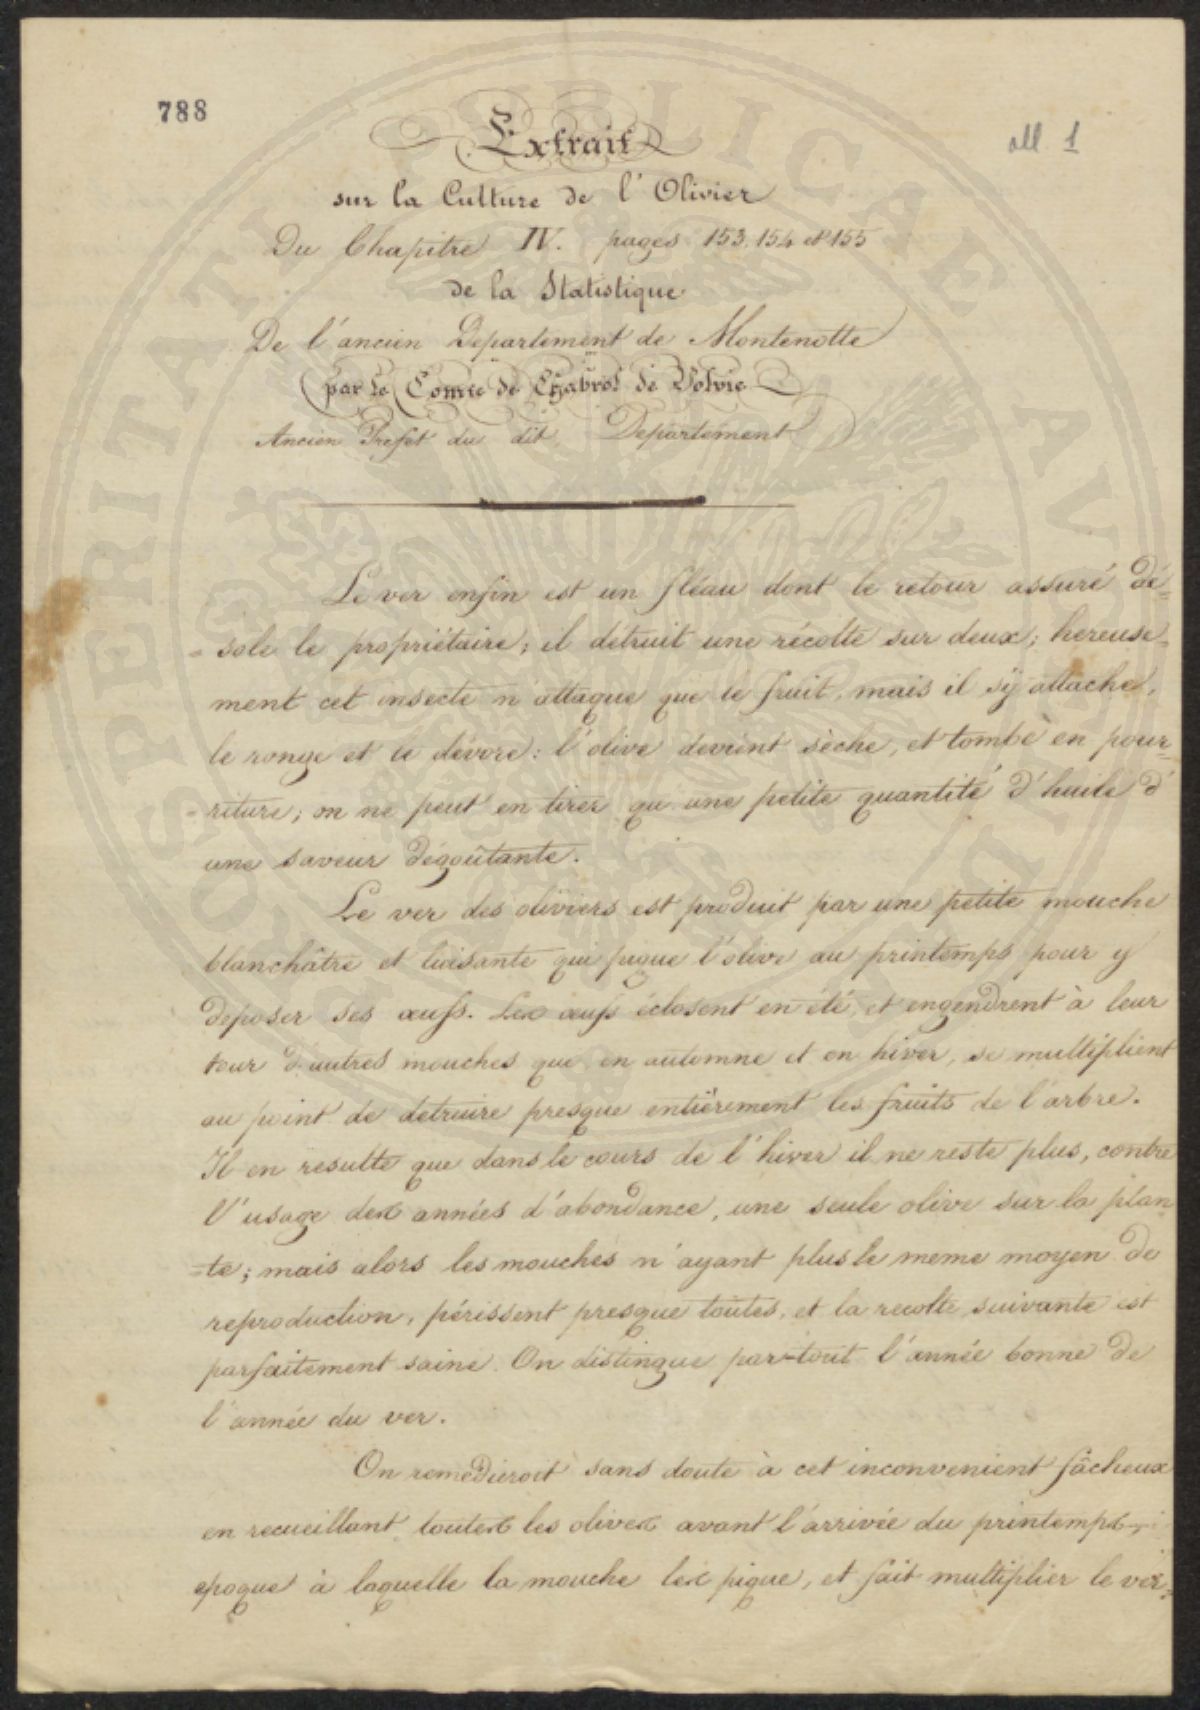 788
all 1
Extrait
sur la Culture de l'Olivier
Du Chapitre IV. pages 153, 154 et 155
de la Statistique
De l'ancien Departement de Montenotte
par le Comte de Chabrol de Volvic
Ancien Prefet du dit Departement
Le ver enfin est un fléau dont le retour assuré dé=
=sole le propriétaire; il détruit une récolte sur deux; hereuse=
ment cet insecte n'attaque que le fruit, mais il s'y attache,
le ronge et le dévore: l'olive devient sèche, et tombe en pour=
=riture; on ne peut en tirer qu'une petite quantité d'huile d'
une saveur dégoûtante.
Le ver des oliviers est produit par une petite mouche
blanchâtre et luisante qui pique l'olive au printemps pour y
deposer ses œufs. Les œufs éclosent en été, et engendrent à leur
tour d'autres mouches que en automne et en hiver, se multiplient
au point de detruire presque entièrement les fruits de l'arbre.
Il en resulte que dans le cours de l'hiver il ne reste plus, contre
l'usage des années d'abondance, une seule olive sur la plan
=te; mais alors les mouches n'ayant plus le meme moyen de
reproduction, périssent presque toutes, et la recolte suivante est
parfaitement saine. On distingue par-tout l'année bonne de
l'année du ver.
On remedieroit sans doute à cet inconvenient fâcheux
en recueillant toutes les olives avant l'arrivée du printemps,
epoque à laquelle la mouche les pique, et fait multiplier le ver.
PROSPERITATI PUBLICAE AUGENDAE